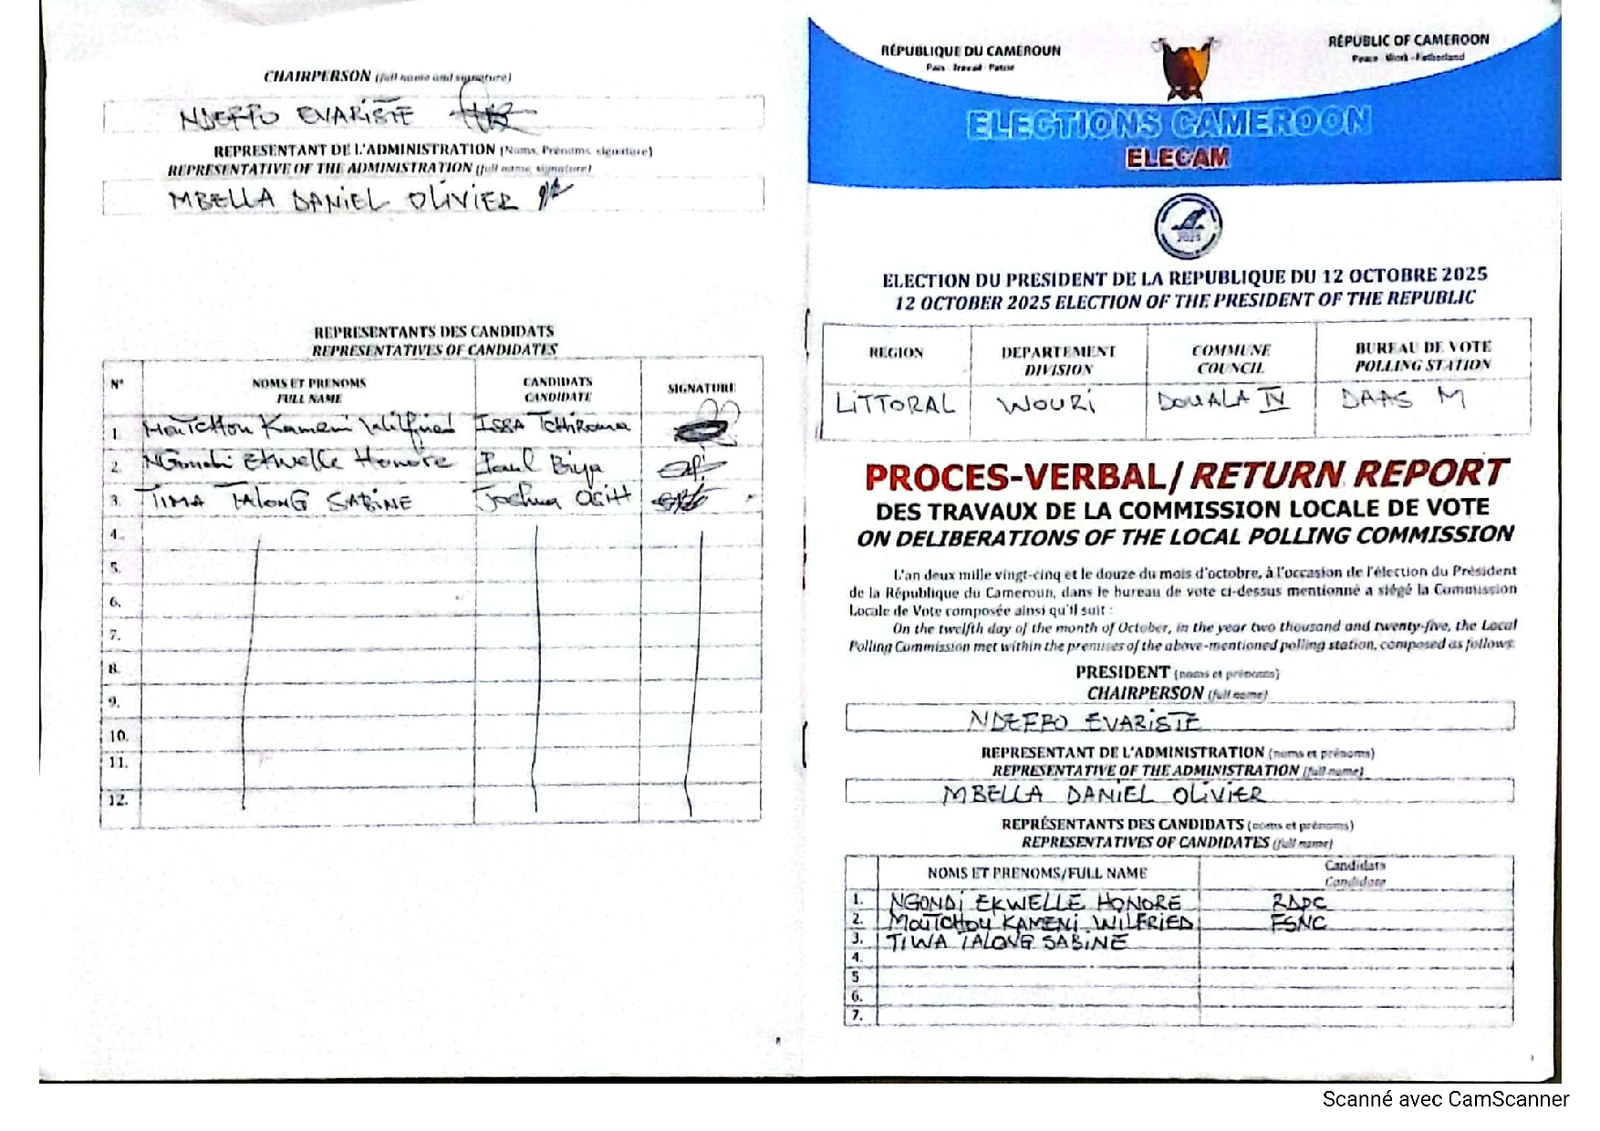 CHAIRPERSON (full name and signature)
NDEFFO EVARISTE
REPRESENTANT DE L'ADMINISTRATION (Noms, Prénoms, signature)
REPRESENTATIVE OF THE ADMINISTRATION (full name, signature)
MBELLA DANIEL OLIVIER
REPRESENTANTS DES CANDIDATS
REPRESENTATIVES OF CANDIDATES
N° NOMS ET PRENOMS CANDIDATS SIGNATURE
FULL NAME CANDIDATE
1. Moutchou Kameni Wilfried ISSA Tchiroma
2. NGondi Ekwelle Honore Paul Biya
3. TIMA TALONG SABINE Joshua OSIH
4.
5.
6.
7.
8.
9.
10.
11.
12.
RÉPUBLIQUE DU CAMEROUN
Paix - Travail - Patrie
RÉPUBLIC OF CAMEROON
Peace - Work - Fatherland
ELECTIONS CAMEROON
ELECAM
2025
ELECTION DU PRESIDENT DE LA REPUBLIQUE DU 12 OCTOBRE 2025
12 OCTOBER 2025 ELECTION OF THE PRESIDENT OF THE REPUBLIC
REGION DEPARTEMENT COMMUNE BUREAU DE VOTE
DIVISION COUNCIL POLLING STATION
LITTORAL WOURI DOUALA IV DAAS M
PROCES-VERBAL/ RETURN REPORT
DES TRAVAUX DE LA COMMISSION LOCALE DE VOTE
ON DELIBERATIONS OF THE LOCAL POLLING COMMISSION
L'an deux mille vingt-cinq et le douze du mois d'octobre, à l'occasion de l'élection du Président
de la République du Cameroun, dans le bureau de vote ci-dessus mentionné a siégé la Commission
Locale de Vote composée ainsi qu'il suit :
On the twelfth day of the month of October, in the year two thousand and twenty-five, the Local
Polling Commission met within the premises of the above-mentioned polling station, composed as follows:
PRESIDENT (noms et prénoms)
CHAIRPERSON (full name)
NDEFFO EVARISTE
REPRESENTANT DE L'ADMINISTRATION (noms et prénoms)
REPRESENTATIVE OF THE ADMINISTRATION (full name)
MBELLA DANIEL OLIVIER
REPRÉSENTANTS DES CANDIDATS (noms et prénoms)
REPRESENTATIVES OF CANDIDATES (full name)
NOMS ET PRENOMS/FULL NAME Candidats
Candidate
1. NGONDI EKWELLE HONORE RDPC
2. MOUTCHOU KAMENI WILFRIED FSNC
3. TIWA TALONG SABINE
4.
5
6.
7.
Scanné avec CamScanner